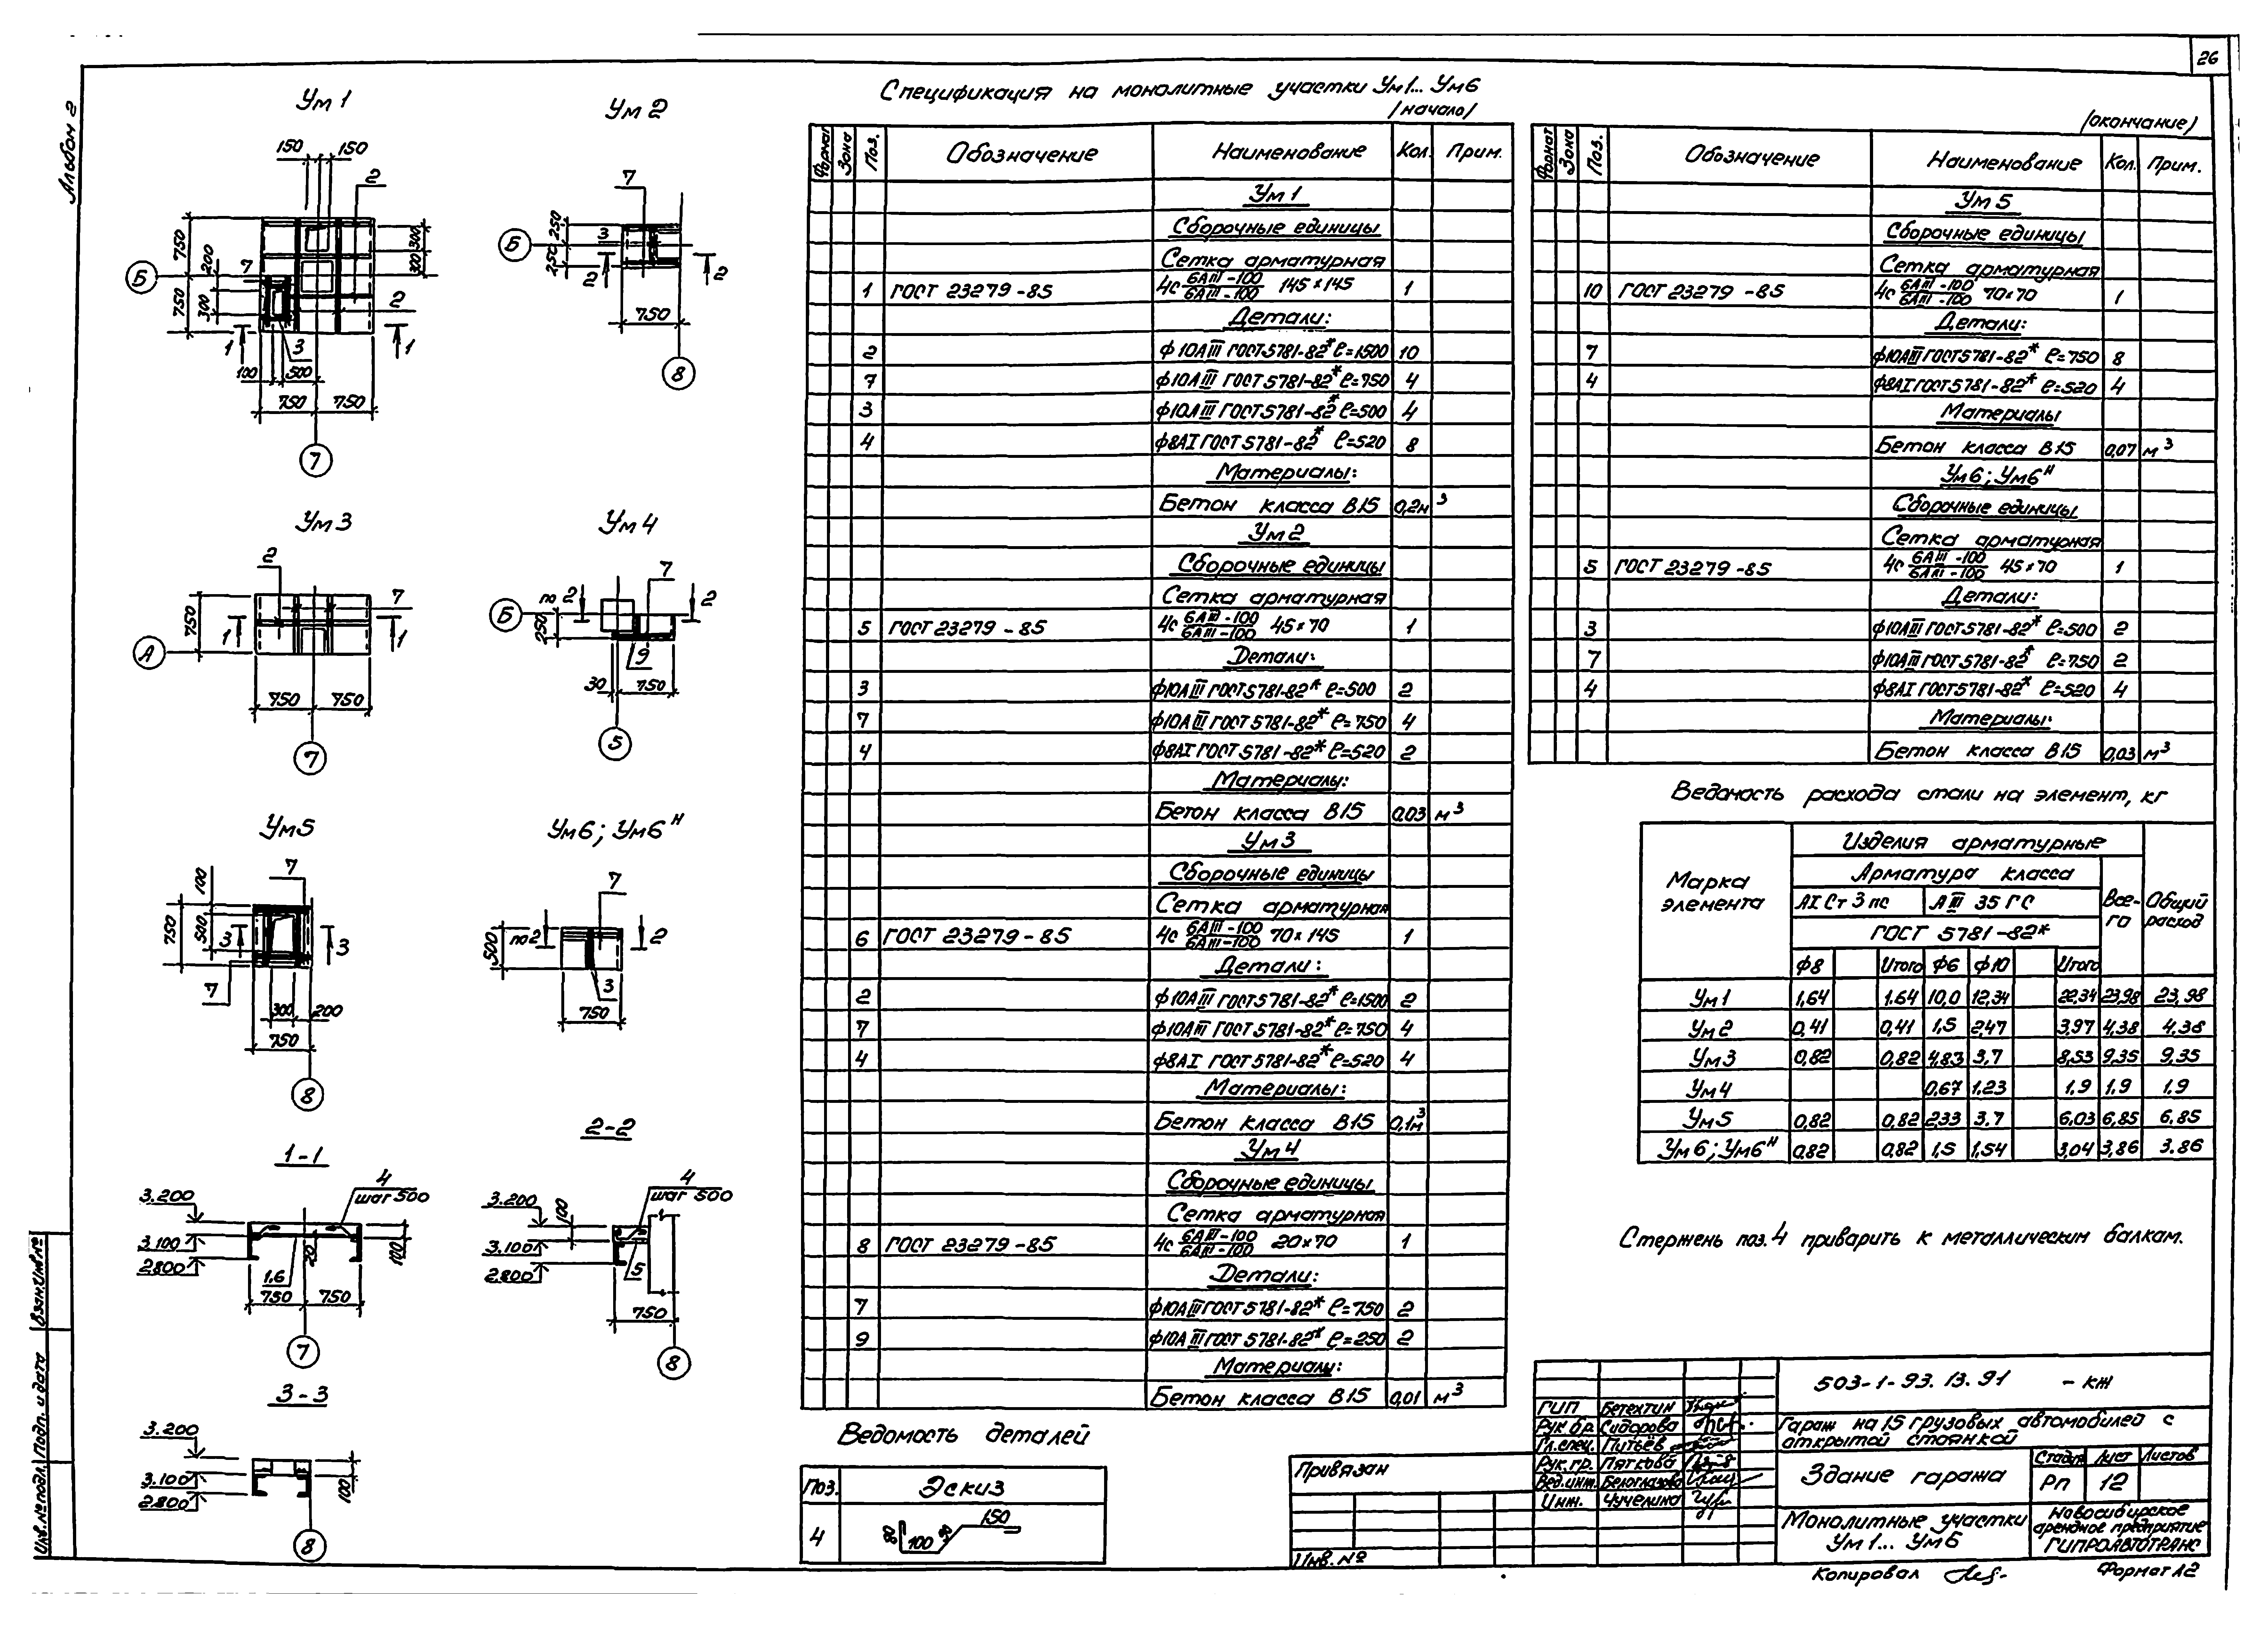 26
Альбом 2
Ум 1
150 150
2
750 200 300 300
Б 7
750 300 2
1 3 1
100 500
750 750
7
Ум 2
7
250 3 Б
250 2 2
750
8
Ум 3
2
7
750 1 1
А
750 750
7
Ум 4
7
по 2 2
Б 250
9
30 750
5
Ум5
7
100
750 500 3 3
7
300 200
750
8
Ум6; Ум6ᴴ
7
по2 2
500
3
750
1-1
4
3.200 шаг 500
3.100 20 100
2.800 1,6
750 750
7
2-2
4
3.200 100 шаг 500
3.100
2.800 5
750
8
3-3
3.200
3.100 100
2.800
8
Спецификация на монолитные участки Ум1... Ум6
/начало/
Формат Зона Поз. Обозначение Наименование Кол. Прим.
Ум 1
Сборочные единицы
Сетка арматурная
1 ГОСТ 23279-85 4с 6АIII-100/6АIII-100 145×145 1
Детали:
2 ф10АIII ГОСТ5781-82* ℓ=1500 10
7 ф10АIII ГОСТ5781-82* ℓ=750 4
3 ф10АIII ГОСТ5781-82* ℓ=500 4
4 ф8АI ГОСТ5781-82* ℓ=520 8
Материалы:
Бетон класса В15 0,2м³
Ум2
Сборочные единицы
Сетка арматурная
5 ГОСТ 23279-85 4с 6АIII-100/6АIII-100 45×70 1
Детали:
3 ф10АIII ГОСТ5781-82* ℓ=500 2
7 ф10АIII ГОСТ5781-82* ℓ=750 4
4 ф8АI ГОСТ5781-82* ℓ=520 2
Материалы:
Бетон класса В15 0,03 м³
Ум3
Сборочные единицы
Сетка арматурная
6 ГОСТ 23279-85 4с 6АIII-100/6АIII-100 70×145 1
Детали:
2 ф10АIII ГОСТ5781-82* ℓ=1500 2
7 ф10АIII ГОСТ5781-82* ℓ=750 4
4 ф8АI ГОСТ5781-82* ℓ=520 4
Материалы:
Бетон класса В15 0,1м³
Ум4
Сборочные единицы
Сетка арматурная
8 ГОСТ 23279-85 4с 6АIII-100/6АIII-100 20×70 1
Детали:
7 ф10АIII ГОСТ5781-82* ℓ=750 2
9 ф10АIII ГОСТ5781-82* ℓ=250 2
Материалы:
Бетон класса В15 0,01 м³
/окончание/
Формат Зона Поз. Обозначение Наименование Кол. Прим.
Ум5
Сборочные единицы
Сетка арматурная
10 ГОСТ 23279-85 4с 6АIII-100/6АIII-100 70×70 1
Детали:
7 ф10АIII ГОСТ5781-82* ℓ=750 8
4 ф8АI ГОСТ5781-82* ℓ=520 4
Материалы
Бетон класса В15 0,07 м³
Ум6; Ум6ᴴ
Сборочные единицы
Сетка арматурная
5 ГОСТ 23279-85 4с 6АIII-100/6АIII-100 45×70 1
Детали:
3 ф10АIII ГОСТ5781-82* ℓ=500 2
7 ф10АIII ГОСТ5781-82* ℓ=750 2
4 ф8АI ГОСТ5781-82* ℓ=520 4
Материалы:
Бетон класса В15 0,03 м³
Ведомость расхода стали на элемент, кг
Марка элемента Изделия арматурные Общий расход
Арматура класса Всего
АI Ст 3 пс АIII 35 ГС
ГОСТ 5781-82*
ф8 Итого ф6 ф10 Итого
Ум1 1,64 1.64 10,0 12,34 22,34 23,98 23,98
Ум2 0,41 0,41 1,5 2,47 3,97 4,38 4,38
Ум3 0,82 0,82 4,83 3.7 8,53 9,35 9,35
Ум4 0,67 1,23 1.9 1.9 1.9
Ум5 0,82 0,82 2,33 3.7 6.03 6,85 6.85
Ум6; Ум6ᴴ 0,82 0,82 1,5 1,54 3,04 3,86 3.86
Стержень поз.4 приварить к металлическим балкам.
Ведомость деталей
Поз. Эскиз
4 80 100 90 150
Привязан
Инв. №
ГИП Бетехтин
Рук.бр. Сидорова
Гл.спец. Питьёв
Рук.гр. Пяткова
Вед.инж. Белоглазова
Инж. Чучелина
503-1-93.13.91 -КЖ
Гараж на 15 грузовых автомобилей с
открытой стоянкой
Здание гаража
Стадия Лист Листов
Рп 12
Монолитные участки
Ум1... Ум6
Новосибирское
арендное предприятие
ГИПРОАВТОТРАНС
Копировал
Формат А2
Инв.№ подл. Подп. и дата Взам.инв.№